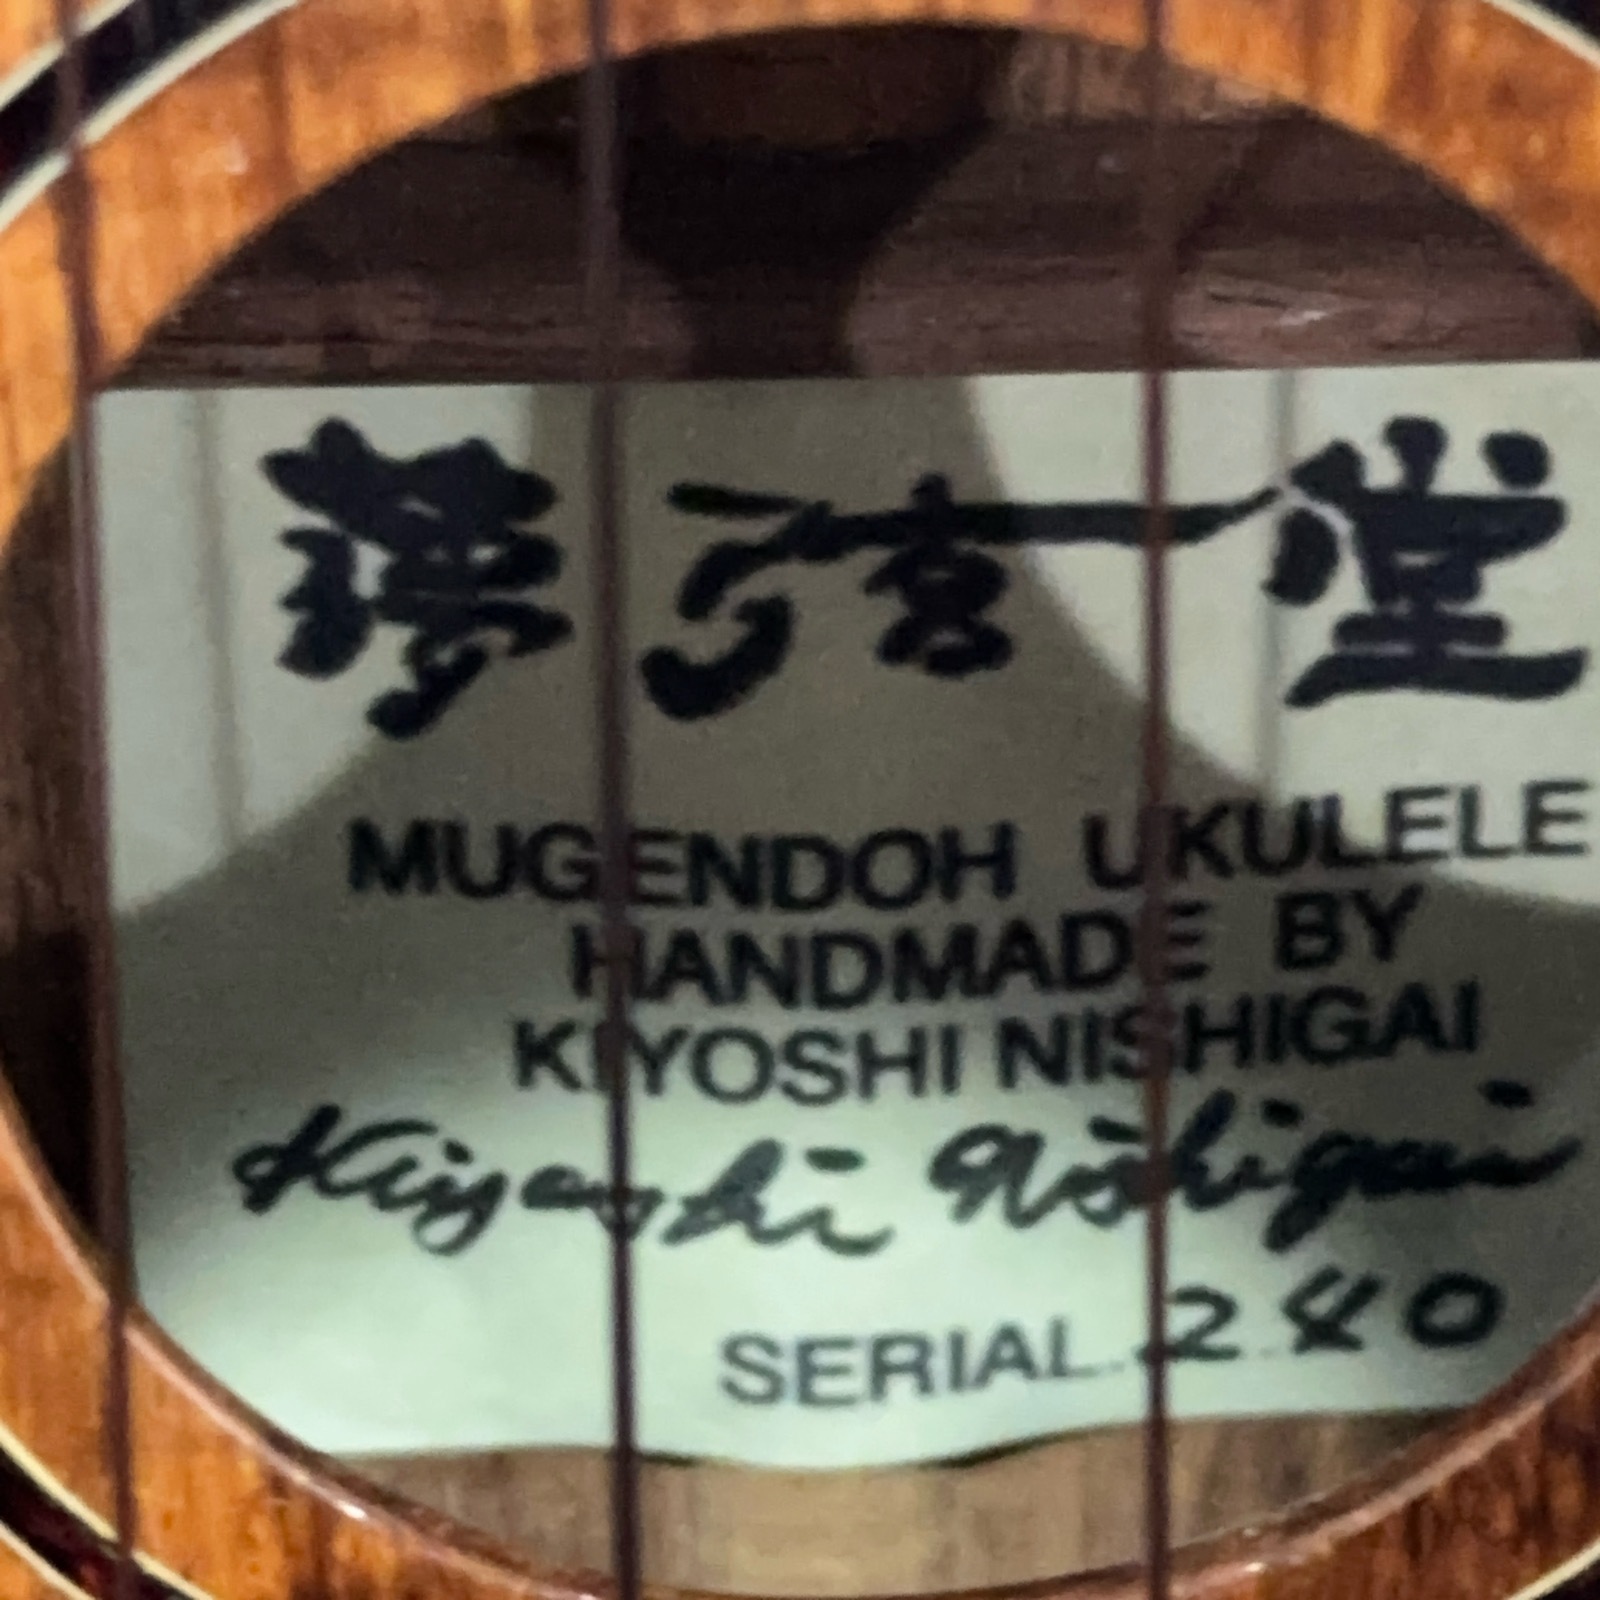 夢弦堂
MUGENDOH UKULELE
HANDMADE BY
KIYOSHI NISHIGAI
Kiyoshi Nishigai
SERIAL 240